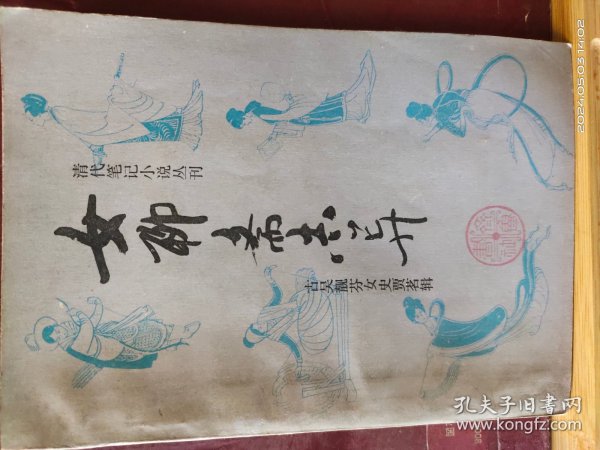 清代笔记小说丛刊
女聊斋志异
古吴靓芬女史贾茗辑
2024.05.03 14:02
孔夫子旧书网